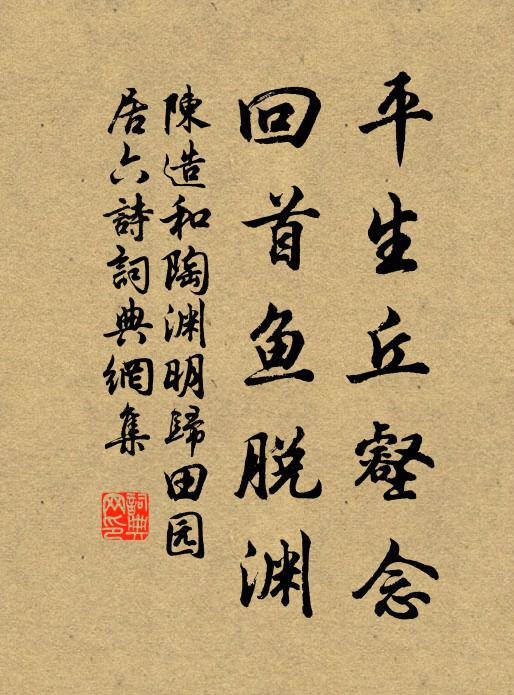 平生丘壑念
回首鱼脱渊
陳造和陶渊明歸田园
居六詩詞典網集
詞典网印